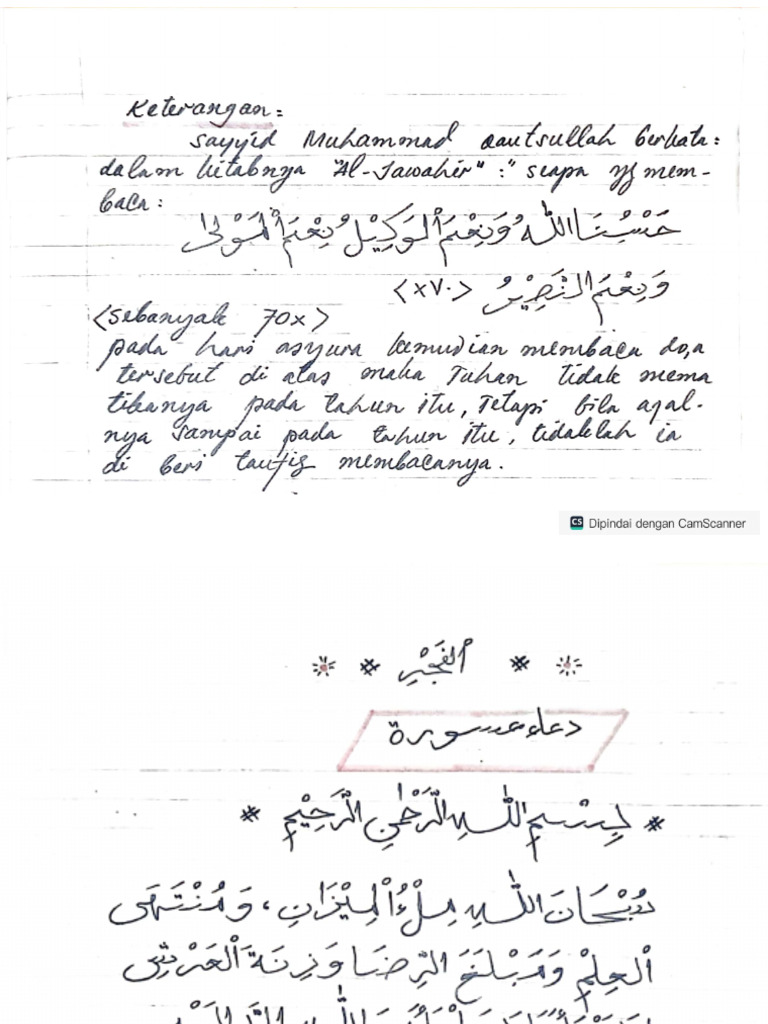 Keterangan:
Sayyid Muhammad Gautsullah berkata:
dalam kitabnya "Al-Jawahir" :" siapa yg mem-
baca:
حَسْبُنَا اللّٰهُ وَنِعْمَ الْوَكِيْلُ نِعْمَ الْمَوْلٰى
وَنِعْمَ النَّصِيْرُ <٧٠x>
<sebanyak 70x>
pada hari asyura kemudian membaca do,a
tersebut di atas maka Tuhan tidak mema
tikanya pada tahun itu, Tetapi bila ajal-
nya sampai pada tahun itu, tidaklah ia
di beri taufiq membacanya.
CS Dipindai dengan CamScanner
الفَجْرِ
دعاء عسورة
بِسْمِ اللّٰهِ الرَّحْمٰنِ الرَّحِيْمِ
سُبْحَانَ اللّٰهِ مِلْءُ الْمِيْزَانِ، وَمُنْتَهَى
الْعِلْمِ وَمَبْلَغَ الرِّضَا وَزِنَةَ الْعَرْشِ